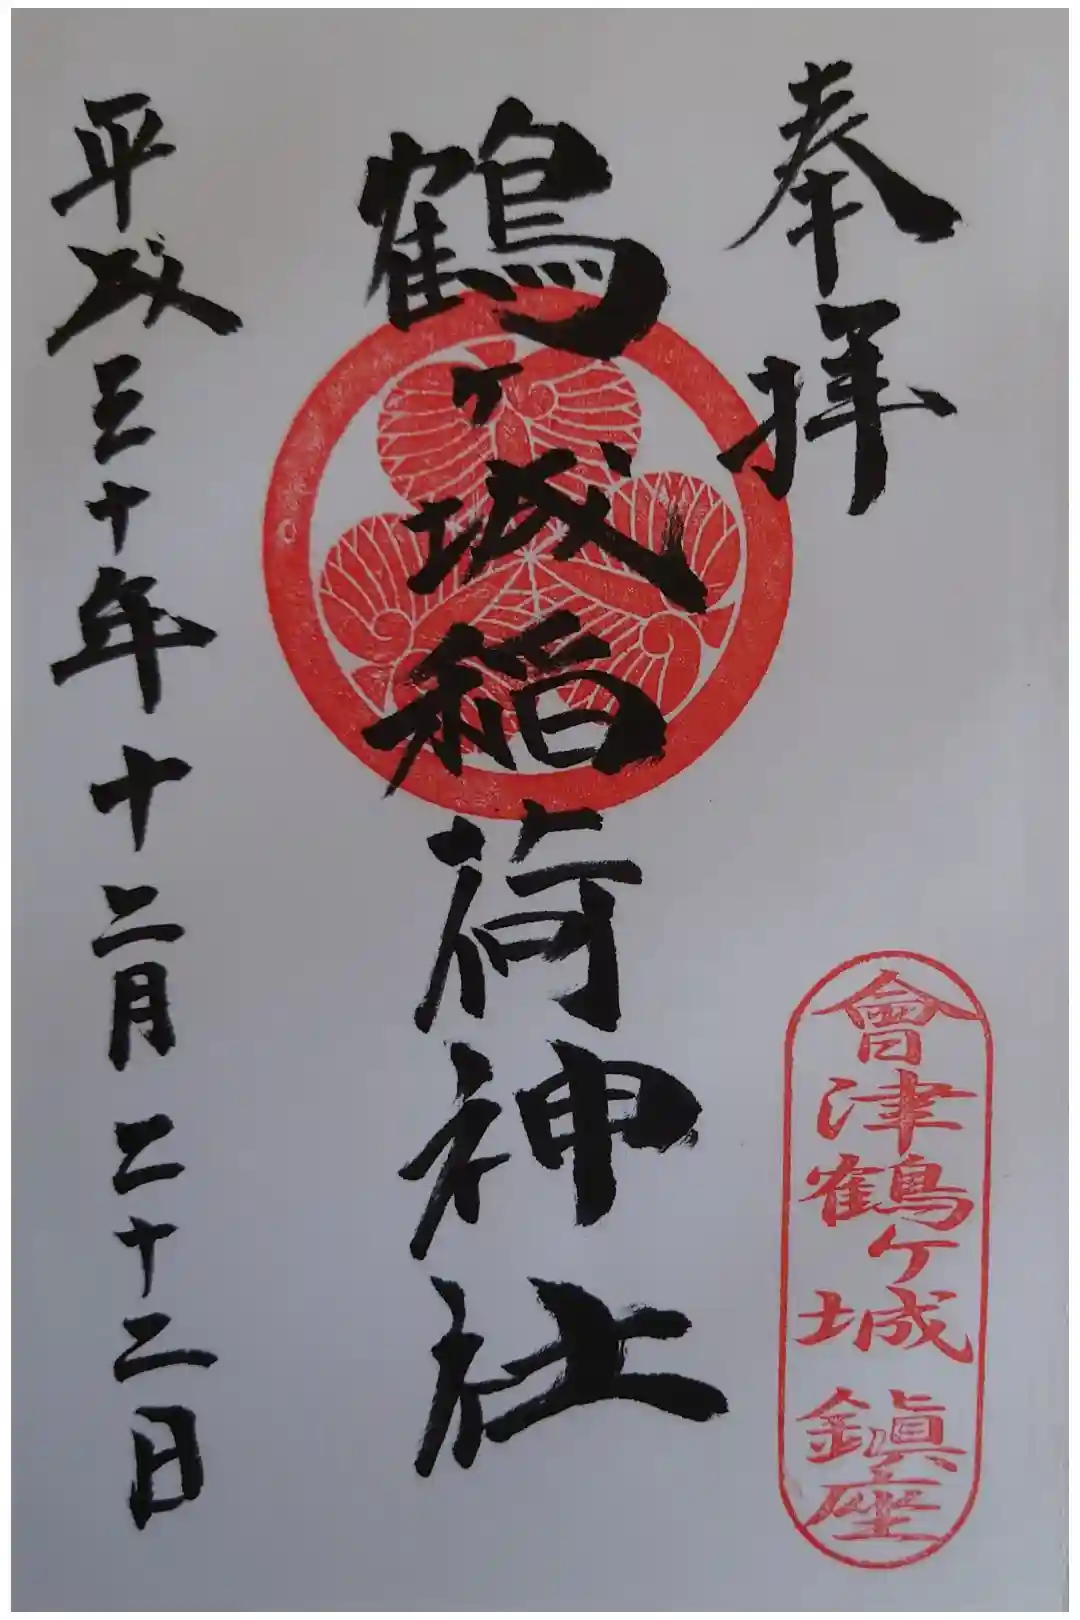 奉拝
會津鶴ヶ城鎮座
鶴ヶ城稲荷神社
平成三十年十二月二十二日